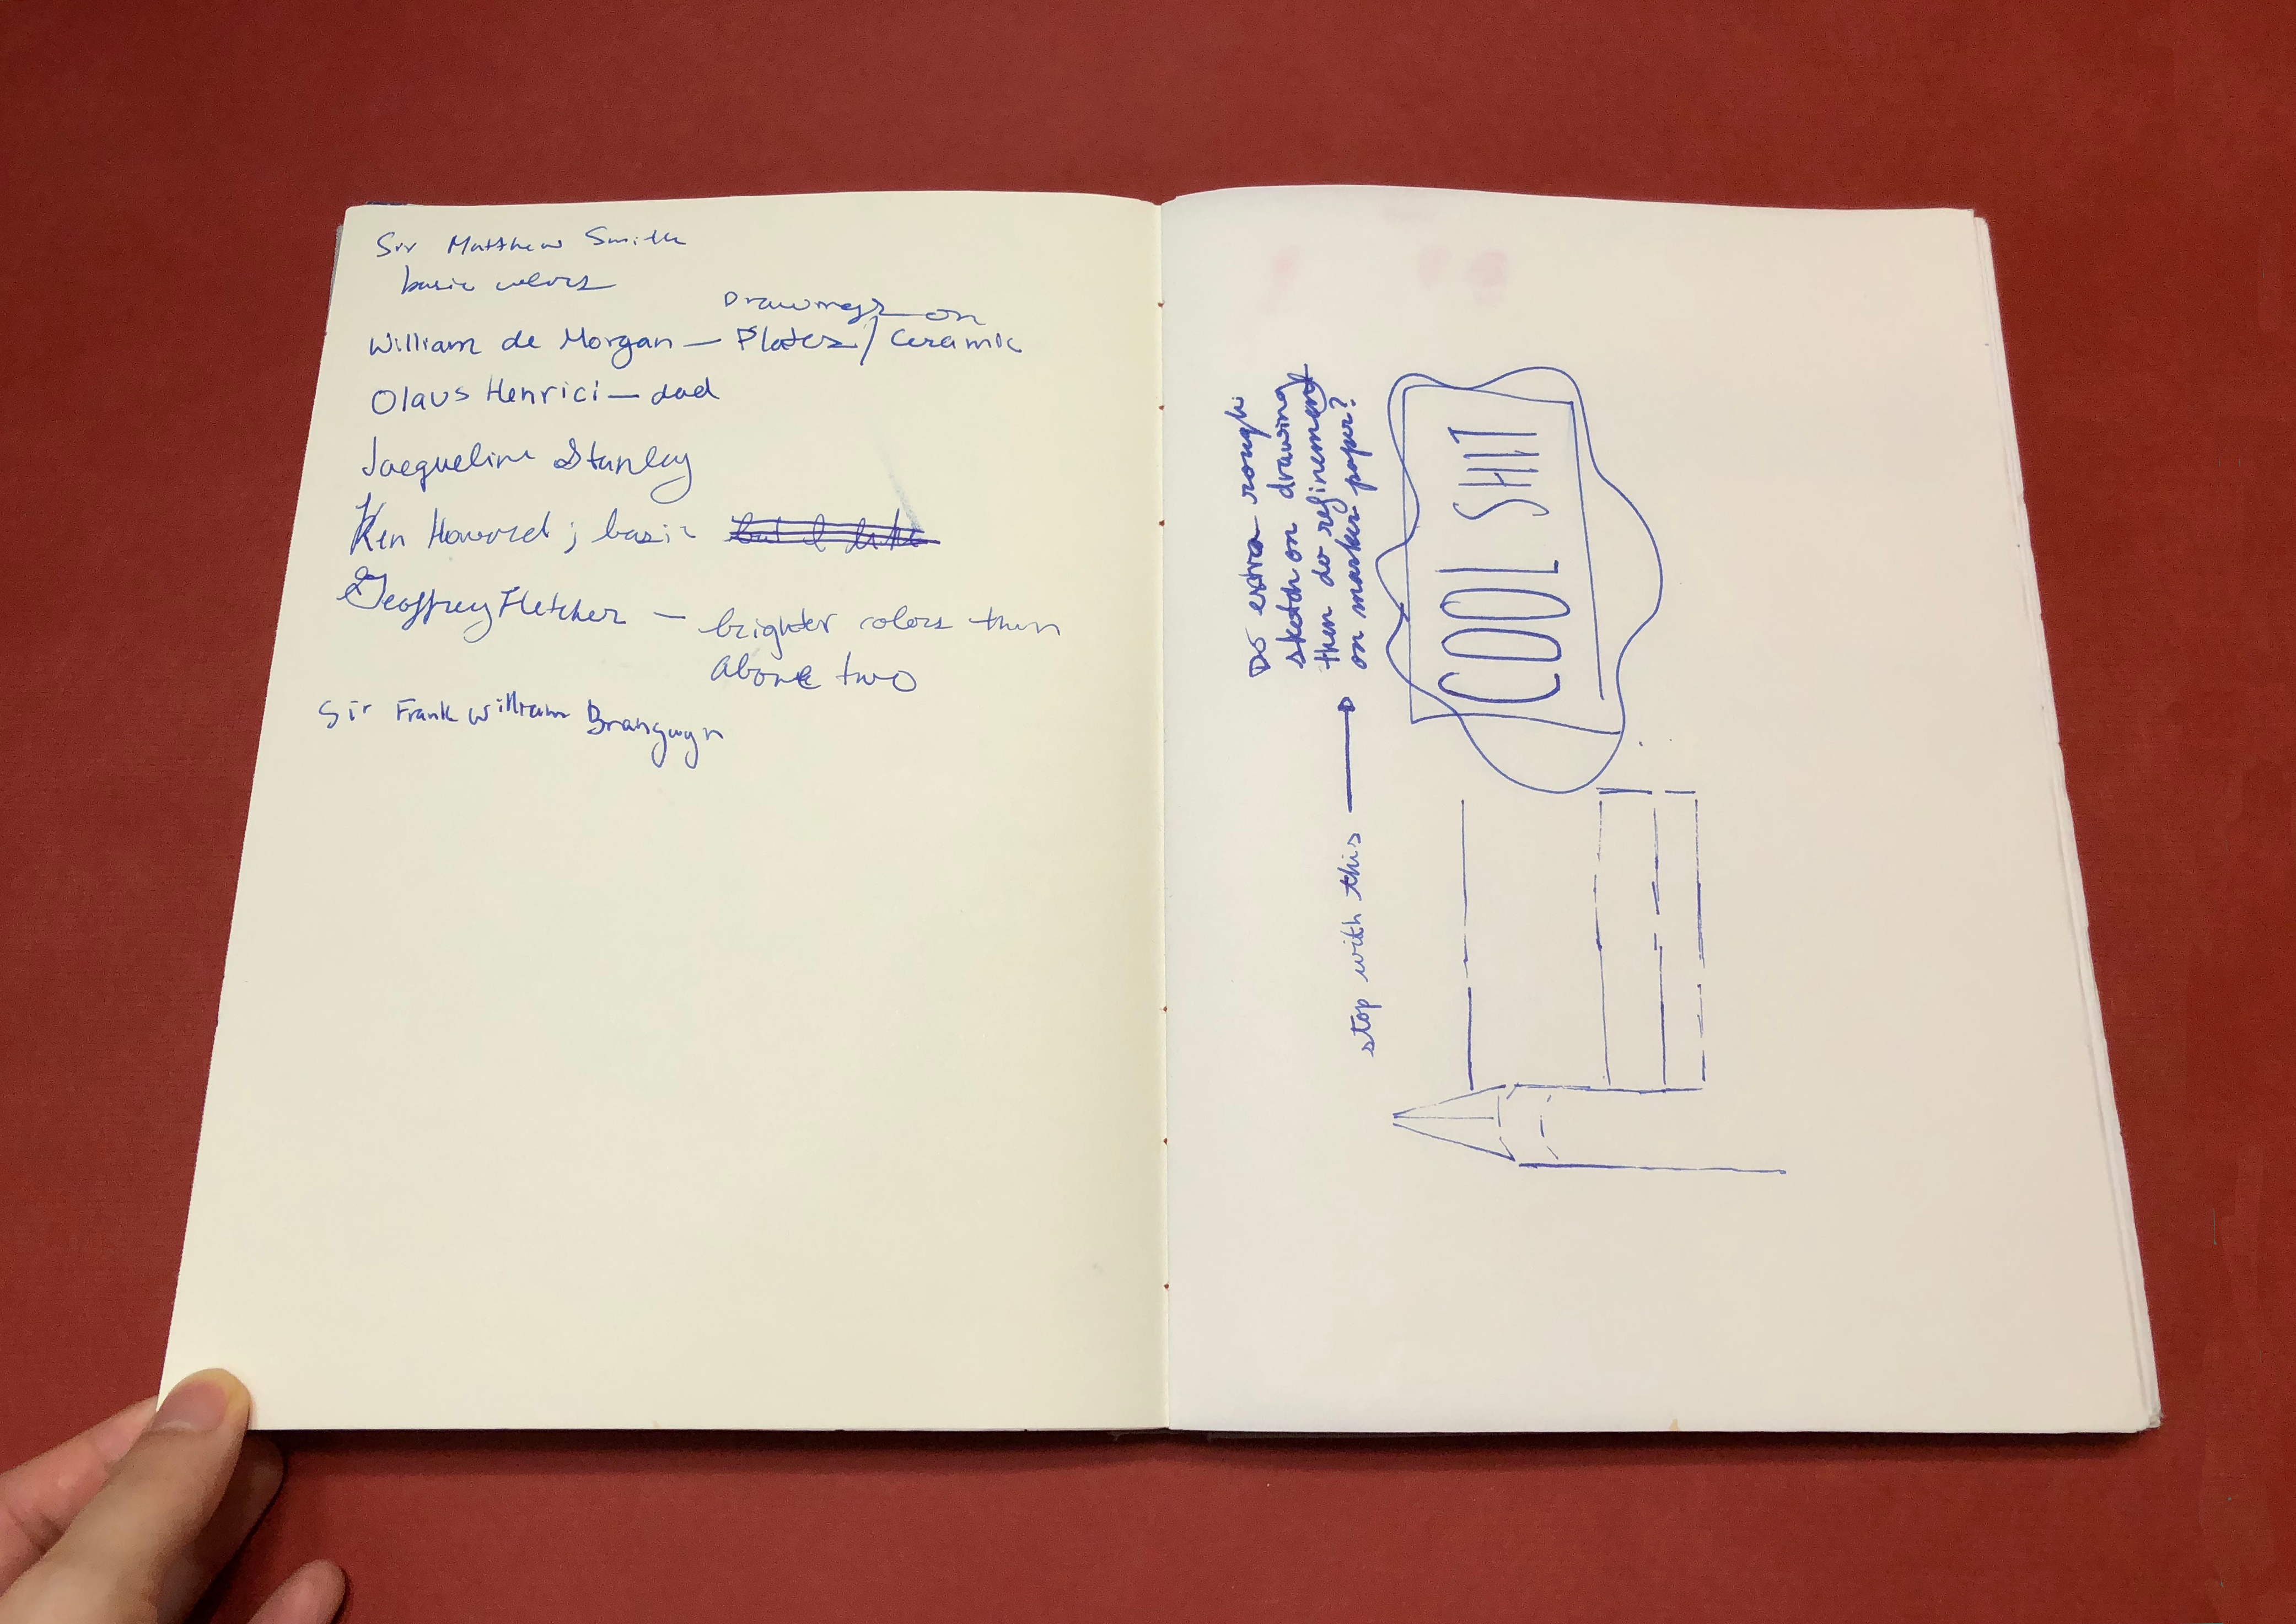 Sir Matthew Smith
basic colors
Drawings on
William de Morgan — Plates / Ceramic
Olaus Henrici — dad
Jacqueline Stanley
Ken Howard ; basic but I like
Geoffrey Fletcher — brighter colors then
above two
Sir Frank William Brangwyn
Do extra rough
sketch on drawing
then do refinement
on marker paper?
stop with this
COOL SHIT